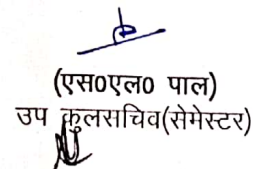 (एस0एल0 पाल)
उप कुलसचिव(सेमेस्टर)